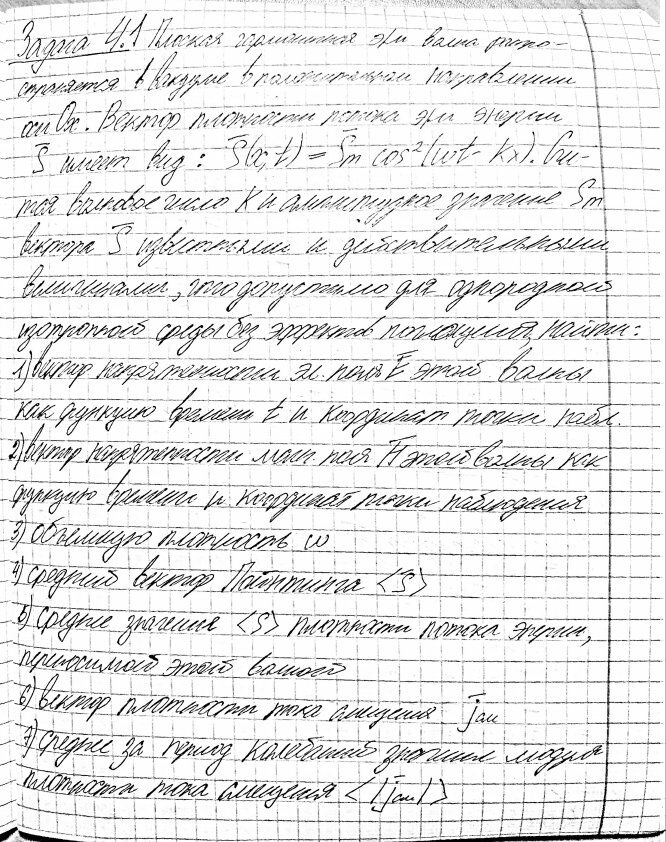 Задача 4.1 Плоская гармоничная эл волна распро-
страняется в вакууме в положительном направлении
оси Ox. Вектор плотности потока эл энергии
S имеет вид: S(x,t) = Sm cos²(ωt - kx). Счи-
тая волновое число K и амплитудное значение Sm
вектора S известными и действительными
величинами, что допустимо для однородной
изотропной среды без эффектов поглощения, найти:
1) вектор напряженности эл. поля E этой волны
как функцию времени t и координат точки набл.
2) вектор напряженности маг. поля H этой волны как
функцию времени и координат точки наблюдения
3) объемную плотность w
4) средний вектор Пойнтинга <S>
5) средние значения <S> плотности потока энергии,
переносимой этой волной
6) вектор плотности тока смещения jсм
7) среднее за период колебаний значения модуля
плотности тока смещения <|jсм|>